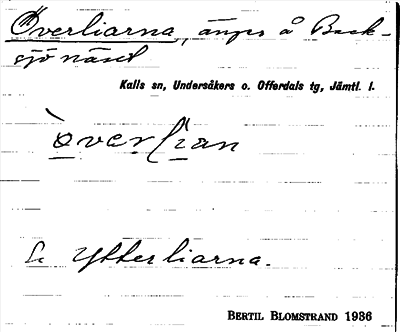 Överliarna, änges å Back-
sjönäset
Kalls sn, Undersåkers o. Offerdals tg, Jämtl. l.
òverlìan
Ytterliarna.
BERTIL BLOMSTRAND 1936